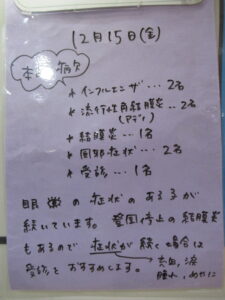 12月15日(金)
本日の病欠
* インフルエンザ…2名
* 流行性角結膜炎…2名
(アデノ)
* 結膜炎…1名
* 風邪症状…2名
* 受診…1名
眼の症状のある子が
続いています。登園停止の結膜炎
もあるので 症状が続く場合は
受診をおすすめします。
充血、涙
腫れ、めやに